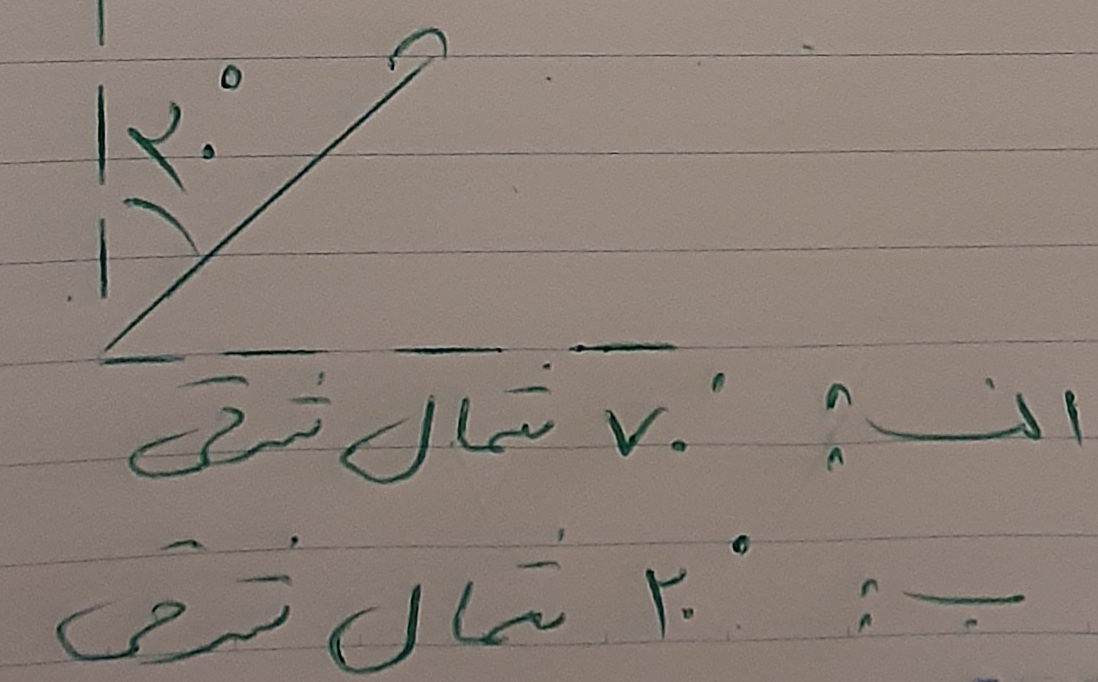 ۲۰°
الف: ۷۰° شمال شرقی
ب: ۲۰° شمال شرقی